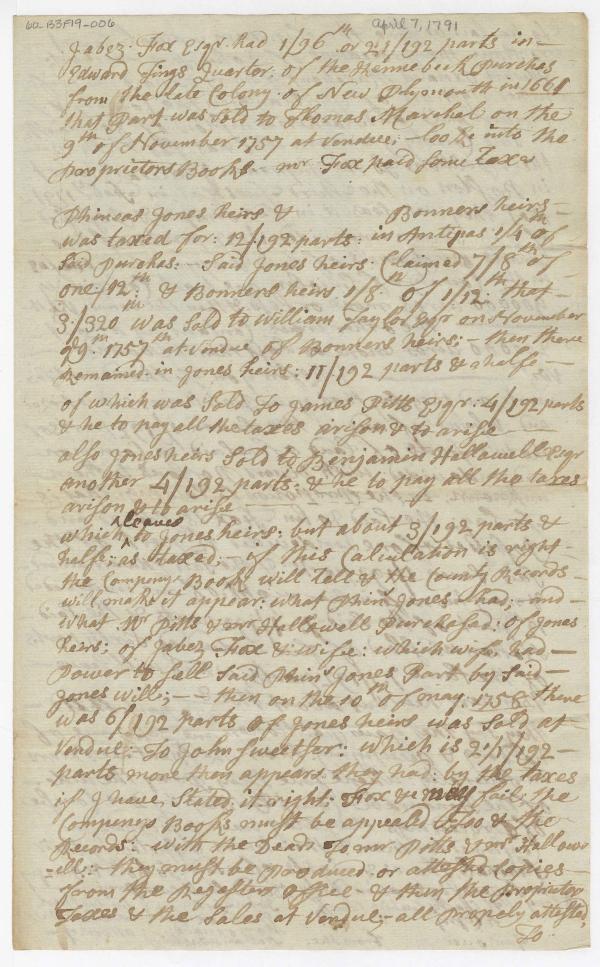 60-B3F19-006
April 7, 1791
Jabez Fox Esqr. had 1/96th or 2/192 parts in
Edward Tings Quartor of the Kennebeck purchas
from the late Colony of New Plymouth in 1661
that Part was sold to Thomas Marchel on the
9th of November 1757 at Vendue; – looke into the
proprietors Books – mr Fox paid some taxe
Phineas Jones heirs & Bonners heirs
was taxed for: 12/192 parts: in Antipas 1/4th of
said purchas: – Said Jones heirs Claimed 7/8th of
one:/12th & Bonners heirs 1/8th of 1/12th that
3:/320th was sold to William Taylor Esqr on November
9th 1757th at Vendue of Bonners heirs; – then there
Remained in Jones heirs: 11/192 parts & a halfe –
of which was Sold To James Pitts Esqr: 4/192 parts
& he to pay all the taxes arison & to arise
also Jones heirs Sold to Benjamin Hallawell Esqr
another 4/192 parts: & he to pay all the taxes
arison & to arise
leaves
which to Jones heirs: but about 3/192 parts &
halfe; as taxed; – if this Calculation is right
the Compenys Books will tell & the County Records
will make it appear: what Phins Jones had; and
what Mr Pitts & mr Hallowell Purchased: of Jones
heirs; of Jabez Fox & Wife: which wife had
Power to sell Said Phins Jones Part by Said
Jones will; – then on the 10th of may 1758 there
was 6/192 parts of Jones heirs was Sold at
Vendue: To John Sweetser: which is 2 1/2/192
parts more then appears they had: by the taxes
if I have Stated it right: Fox & fail; the
Compenys Books must be appeald Too & the
Records: with the Deads To mr Pitts & mr Hallow
=ell: they must be Produced or attested Copies
from the Regesters office & then the Proprietors
Taxes & the Sales at Vendue; – all Properly attested,
To